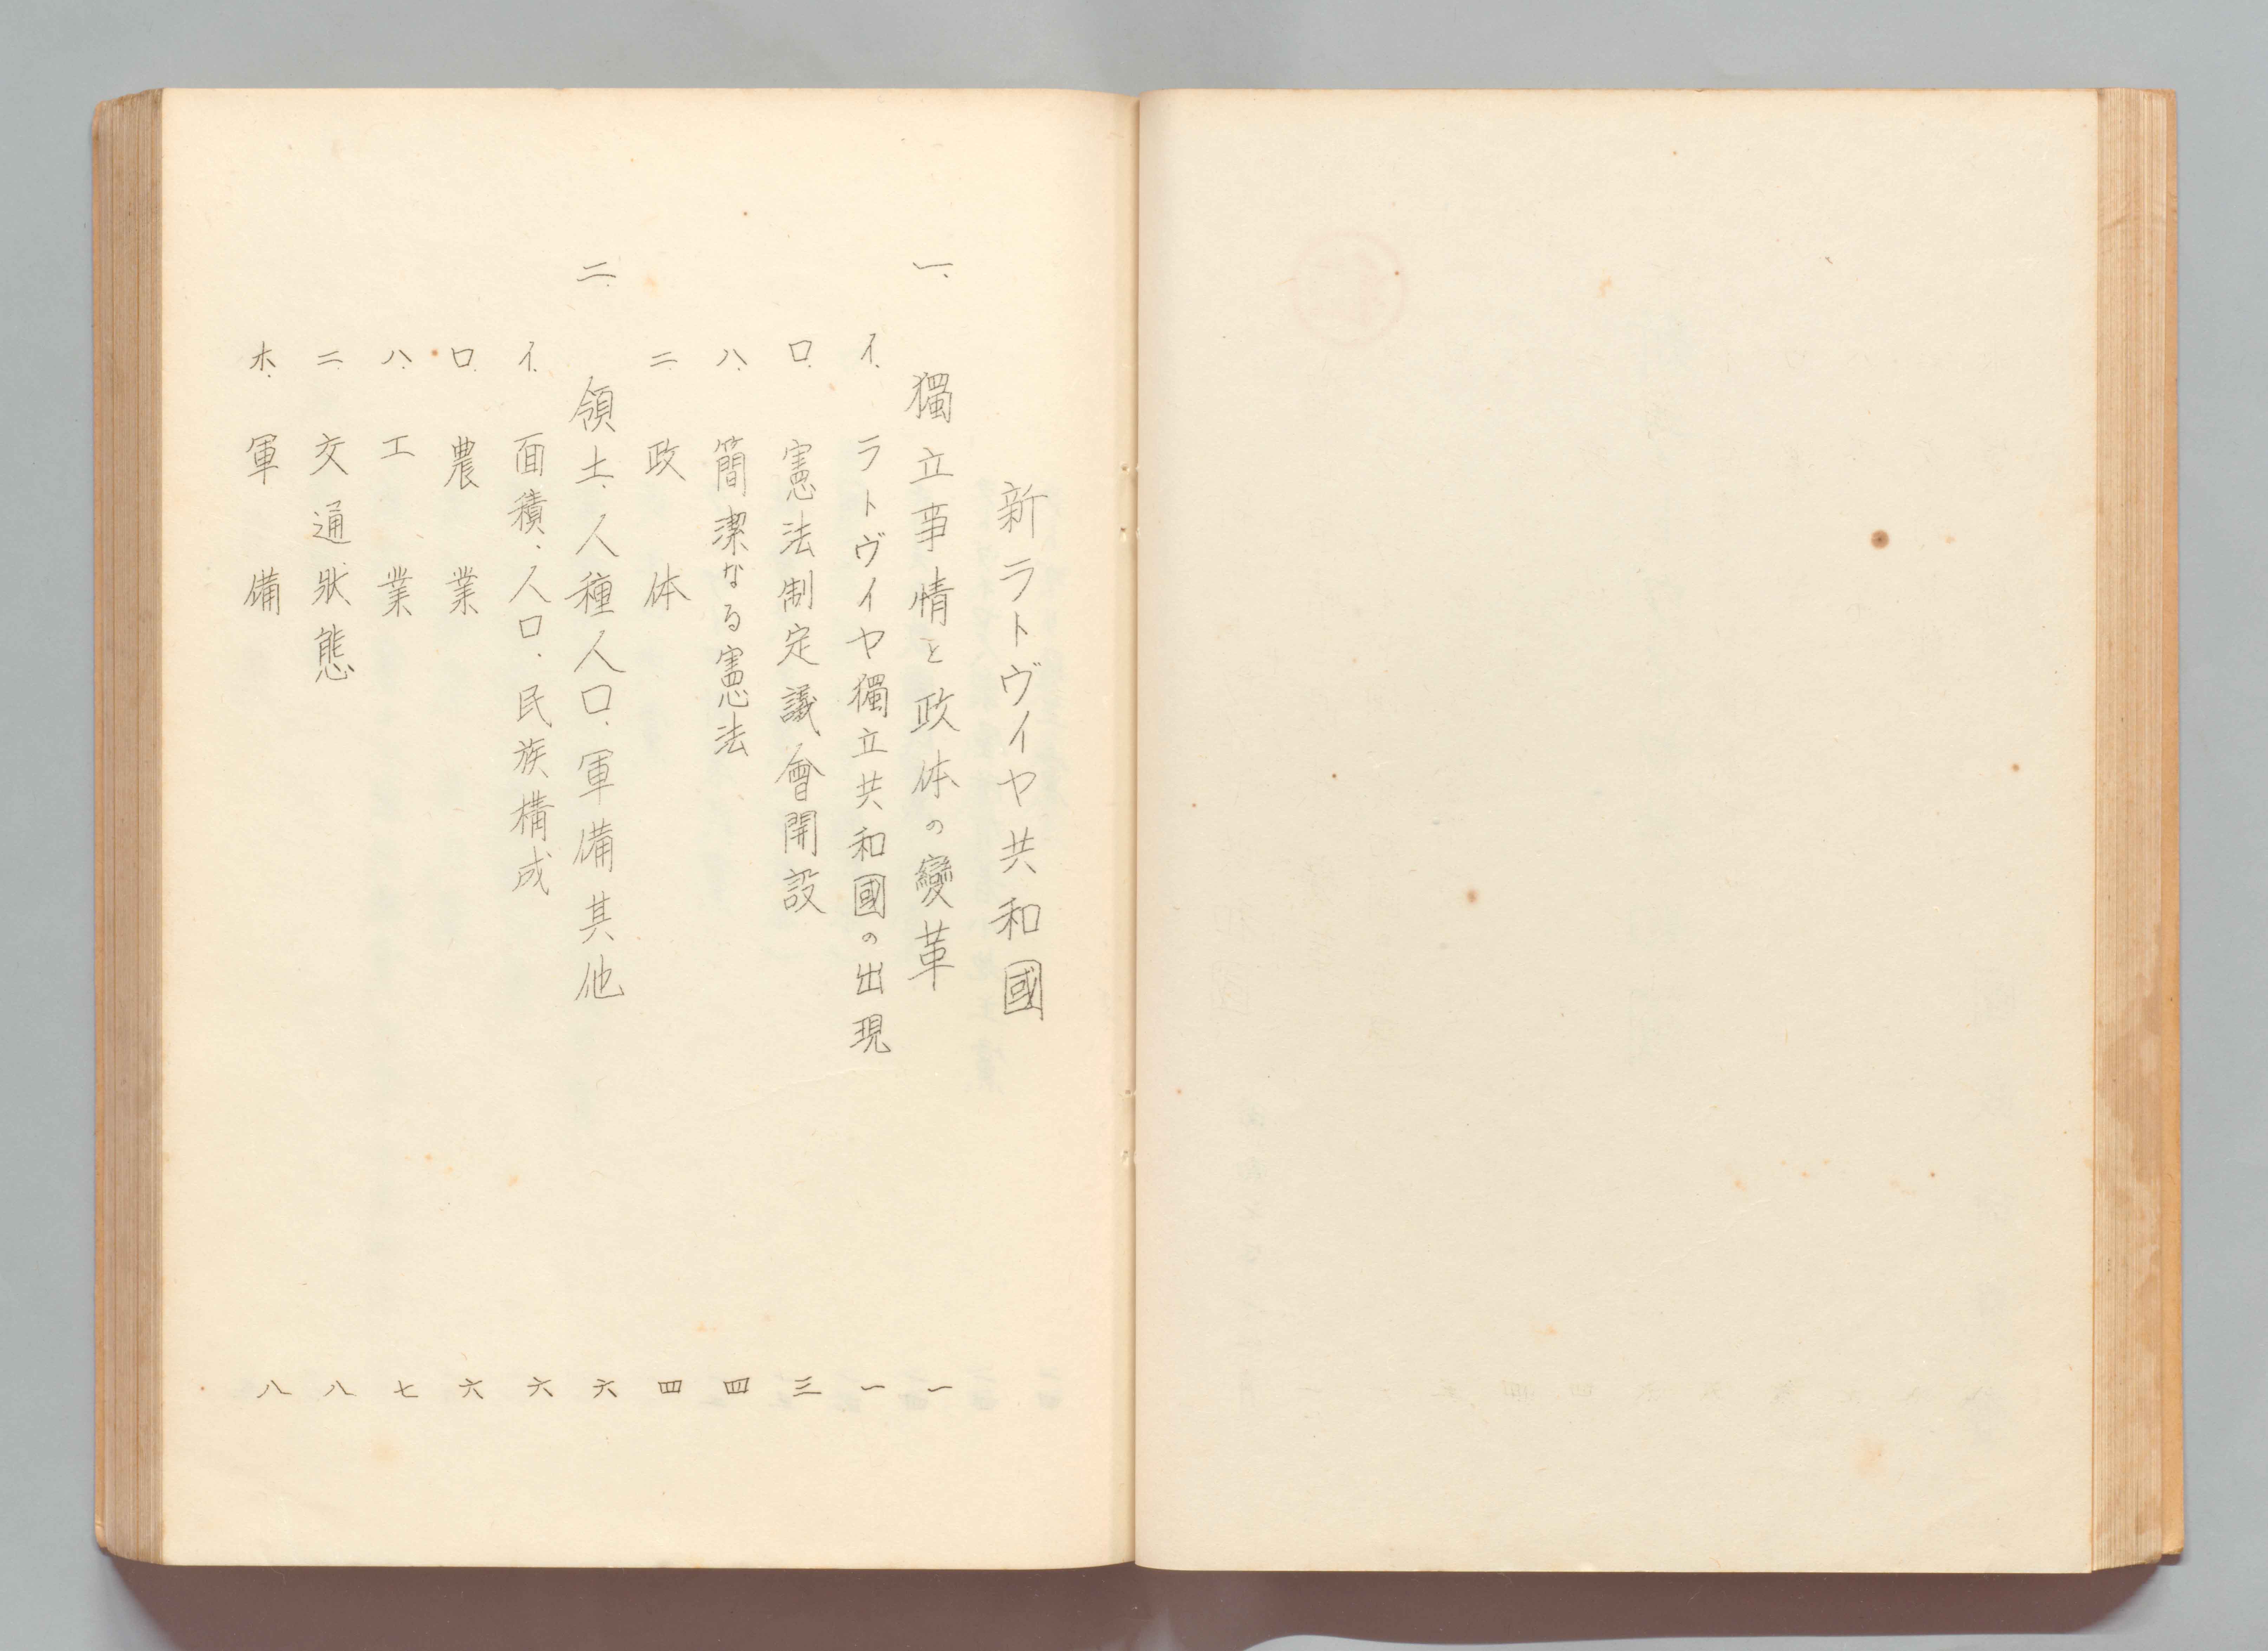 新ラトヴイヤ共和國
一、獨立事情と政体の變革 一
イ、ラトヴイヤ獨立共和國の出現 一
ロ、憲法制定議會開設 三
ハ、簡潔なる憲法 四
ニ、政体 四
二、領土、人種人口、軍備其他 六
イ、面積、人口、民族構成 六
ロ、農業 六
ハ、工業 七
ニ、交通狀態 八
ホ、軍備 八